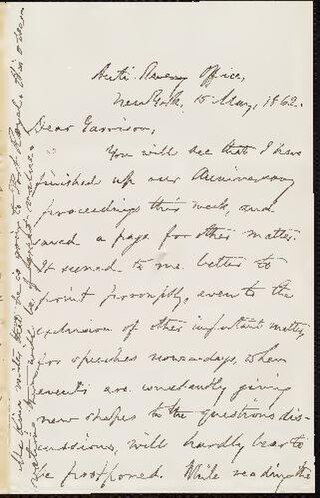 Anti-Slavery Office,
New York, 15 May, 1862.
Dear Garrison,
You will see that I have
finished up our Anniversary
proceedings this week, and
saved a page for other matter.
It seemed to me better to
print promptly, even to the
exclusion of other important matter,
for speeches nowadays, when
events are constantly giving
new shapes to the questions dis-
cussions, will hardly bear to
be postponed. While reading the
McKim writes that he is going to Port Royal. His